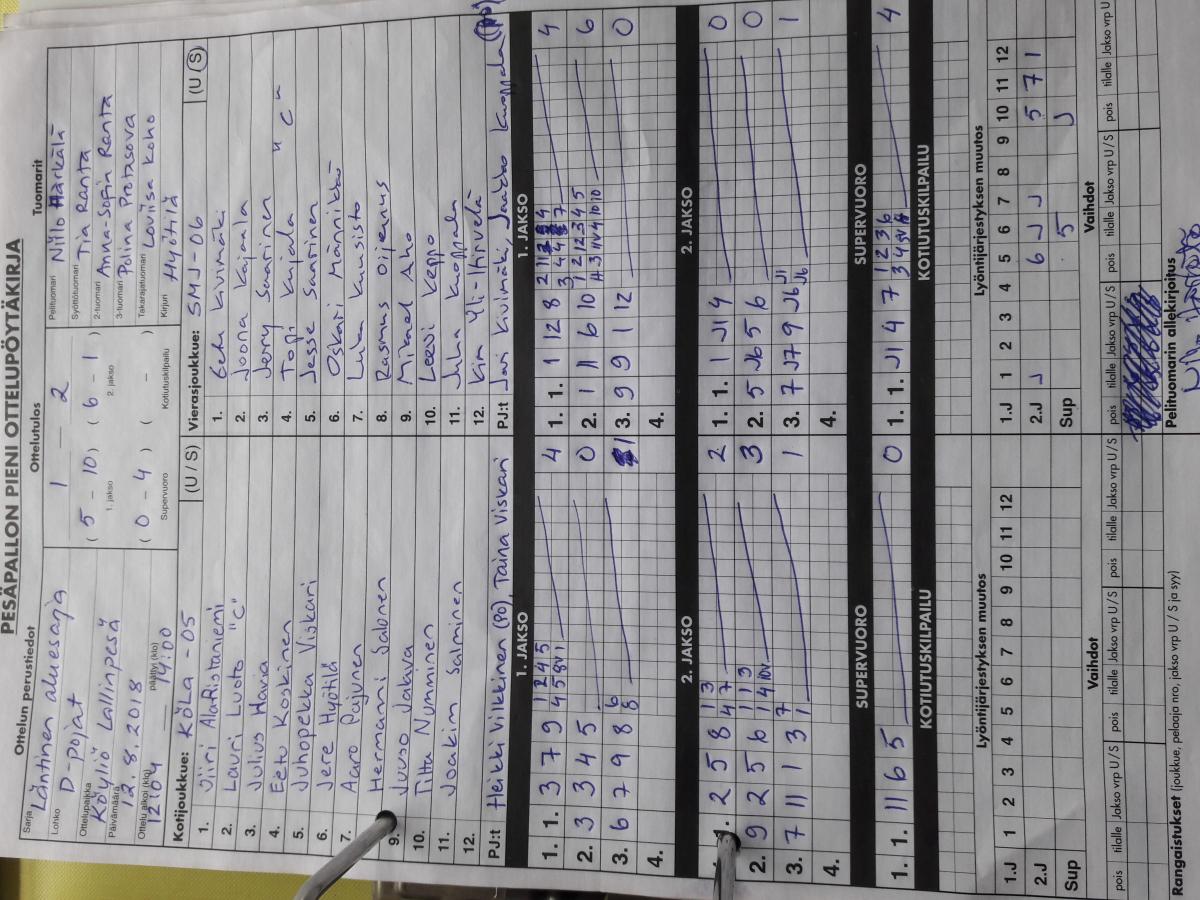 PESÄPALLON PIENI OTTELUPÖYTÄKIRJA
Ottelun perustiedot
Sarja Läntinen aluesarja
Lohko D-pojat
Ottelupaikka Köyliö Lallinpesä
Päivämäärä 12.8.2018
Ottelu alkoi (klo) 12:04
päättyi (klo) 14:00
Ottelutulos
1 — 2
( 5 - 10 ) ( 6 - 1 )
1. jakso 2. jakso
( 0 - 4 ) ( - )
Supervuoro Kotiutuskilpailu
Tuomarit
Pelituomari Niilo Härkälä
Syöttötuomari Tia Ranta
2-tuomari Anna-Sofia Ranta
3-tuomari Polina Protasova
Takarajatuomari Loviisa Koho
Kirjuri Hyötilä
Kotijoukkue: KöLa -05 (U / S)
1. Oiiri AlaRistaniemi
2. Lauri Luoto "C"
3. Julius Havia
4. Eetu Koskinen
5. Juhopekka Viskari
6. Jere Hyötilä
7. Aaro Pajunen
8. Hermanni Salonen
9. Juuso Jakava
10. Titta Nymminen
11. Joakim Salminen
12.
PJ:t Heikki Vilkkinen (PO), Taina Viskari
Vierasjoukkue: SMJ-06 (U / S)
1. Eelu Kuvimäki
2. Joona Kajaala
3. Jerry Saarinen
4. Topi Kujala "C"
5. Jesse Saarinen
6. Oskari Männikkö
7. Luka Kuusisto
8. Rasmus Oijennus
9. Mikael Aho
10. Leevi Keppo
11. Juha Kuoppala
12. Kim Yli-Hirvelä
PJ:t Jari Kuvimäki, Jaakko Kuoppala (PO)
1. JAKSO
1. 1. 3 7 9 1 2 4 5 4
2. 3 3 4 5 0
3. 6 7 9 8 6 8 1
4.
1. JAKSO
1. 1. 1 12 8 4
2. 1 11 6 10 6
3. 9 9 1 12 0
4.
2. JAKSO
1. 1. 2 5 8 1 3 4 7 2
2. 9 2 5 6 1 1 3 3
3. 7 11 1 3 7 1 1
4.
2. JAKSO
1. 1. 1 J1 4 0
2. 5 J6 5 6 0
3. 7 J7 9 J6 J1 J6 1
4.
SUPERVUORO
1. 1. 11 6 5 0
SUPERVUORO
1. 1. J1 4 7 1 2 3 6 4
KOTIUTUSKILPAILU
KOTIUTUSKILPAILU
Lyöntijärjestyksen muutos
1 2 3 4 5 6 7 8 9 10 11 12
1.J
2.J
Sup
Lyöntijärjestyksen muutos
1 2 3 4 5 6 7 8 9 10 11 12
1.J
2.J J 6 J J 5 7 1
Sup 5 J
Vaihdot
pois tilalle Jakso vrp U / S pois tilalle Jakso vrp U / S pois tilalle Jakso vrp U / S
Vaihdot
pois tilalle Jakso vrp U / S pois tilalle Jakso vrp U / S pois tilalle Jakso vrp U
Rangaistukset (joukkue, pelaaja nro, jakso vrp U / S ja syy)
Pelituomarin allekirjoitus